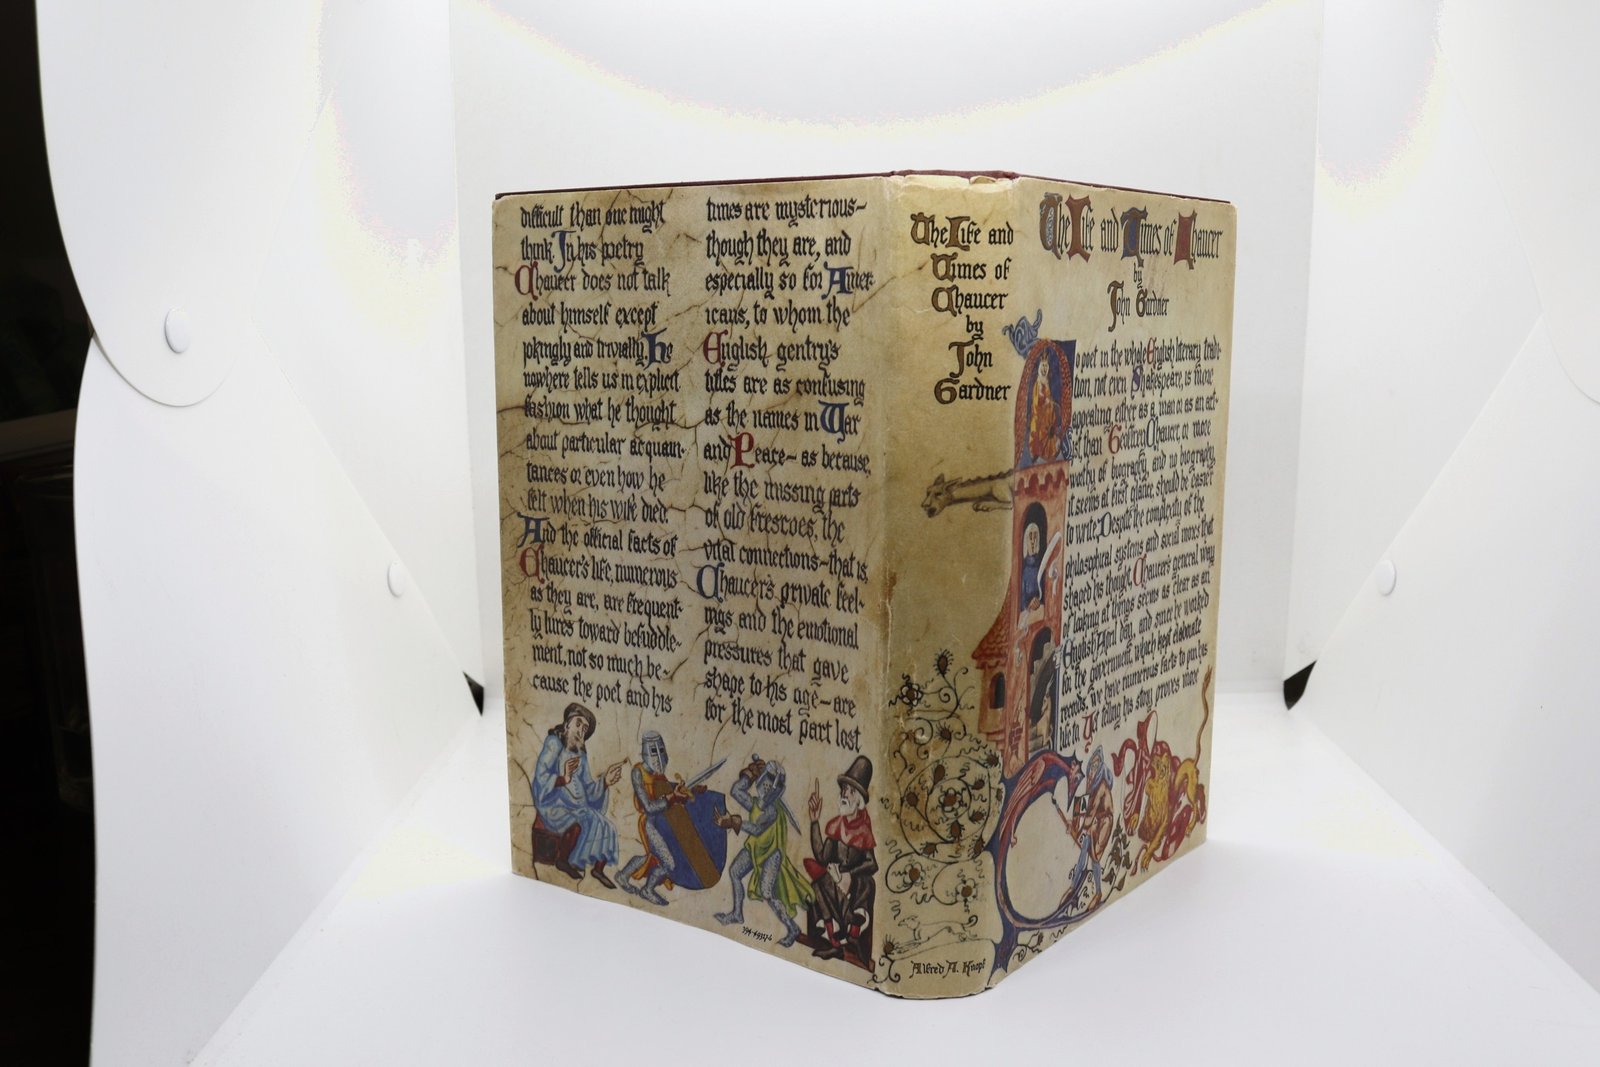 difficult than one might
think. In his poetry
Chaucer does not talk
about himself except
jokingly and trivially. He
nowhere tells us in explicit
fashion what he thought
about particular acquain-
tances or even how he
felt when his wife died.
And the official facts of
Chaucer's life, numerous
as they are, are frequent-
ly lures toward befuddle-
ment, not so much be-
cause the poet and his
times are mysterious—
though they are, and
especially so for Amer-
icans, to whom the
English gentry's
titles are as confusing
as the names in War
and Peace— as because,
like the missing parts
of old frescoes, the
vital connections—that is,
Chaucer's private feel-
ings and the emotional
pressures that gave
shape to his age—are
for the most part lost
394-49317-6
The Life and
Times of
Chaucer
by
John
Gardner
Alfred A. Knopf
The Life and Times of Chaucer
by
John Gardner
No poet in the whole English literary tradi-
tion, not even Shakespeare, is more
appealing either as a man or as an art-
ist than Geoffrey Chaucer, or more
worthy of biography, and no biography,
it seems at first glance, should be easier
to write. Despite the complexity of the
philosophical systems and social mores that
shaped his thought, Chaucer's general way
of looking at things seems as clear as an
English April day, and since he worked
for the government, which kept elaborate
records, we have numerous facts to pin his
life to. Yet telling his story proves more